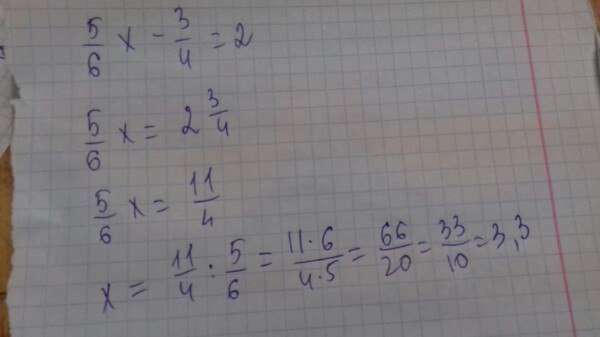 5/6 x - 3/4 = 2
5/6 x = 2 3/4
5/6 x = 11/4
x = 11/4 : 5/6 = 11·6/4·5 = 66/20 = 33/10 = 3,3